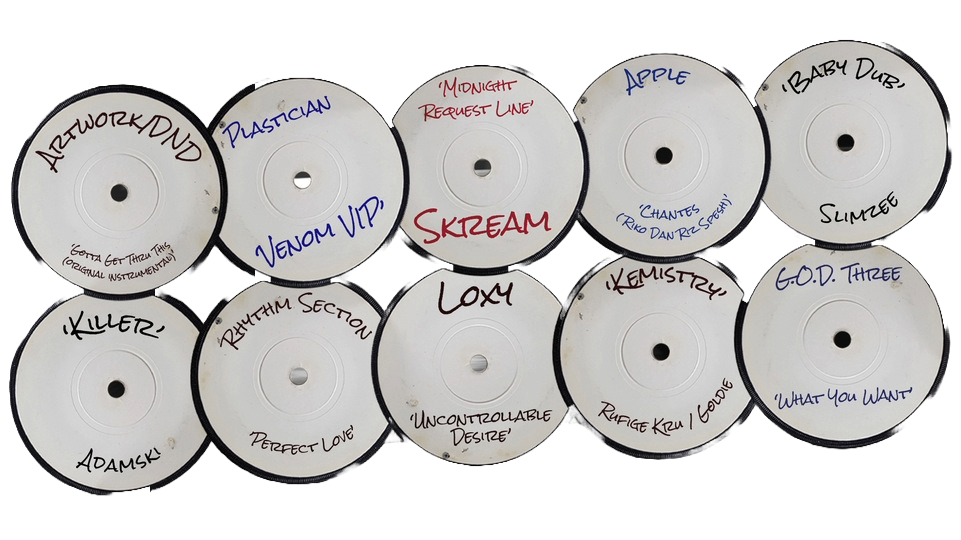 Artwork/DND
'Gotta Get Thru This
(Original Instrumental)'
Plastician
Venom VIP'
'Midnight
Request Line'
Skream
Apple
'Chantes
(Riko Dan Riz Spesh)'
'Baby Dub'
Slimzee
'Killer'
Adamski
Rhythm Section
'Perfect Love'
Loxy
'Uncontrollable
Desire'
'Kemistry'
Rufige Kru / Goldie
G.O.D. Three
'What You Want'